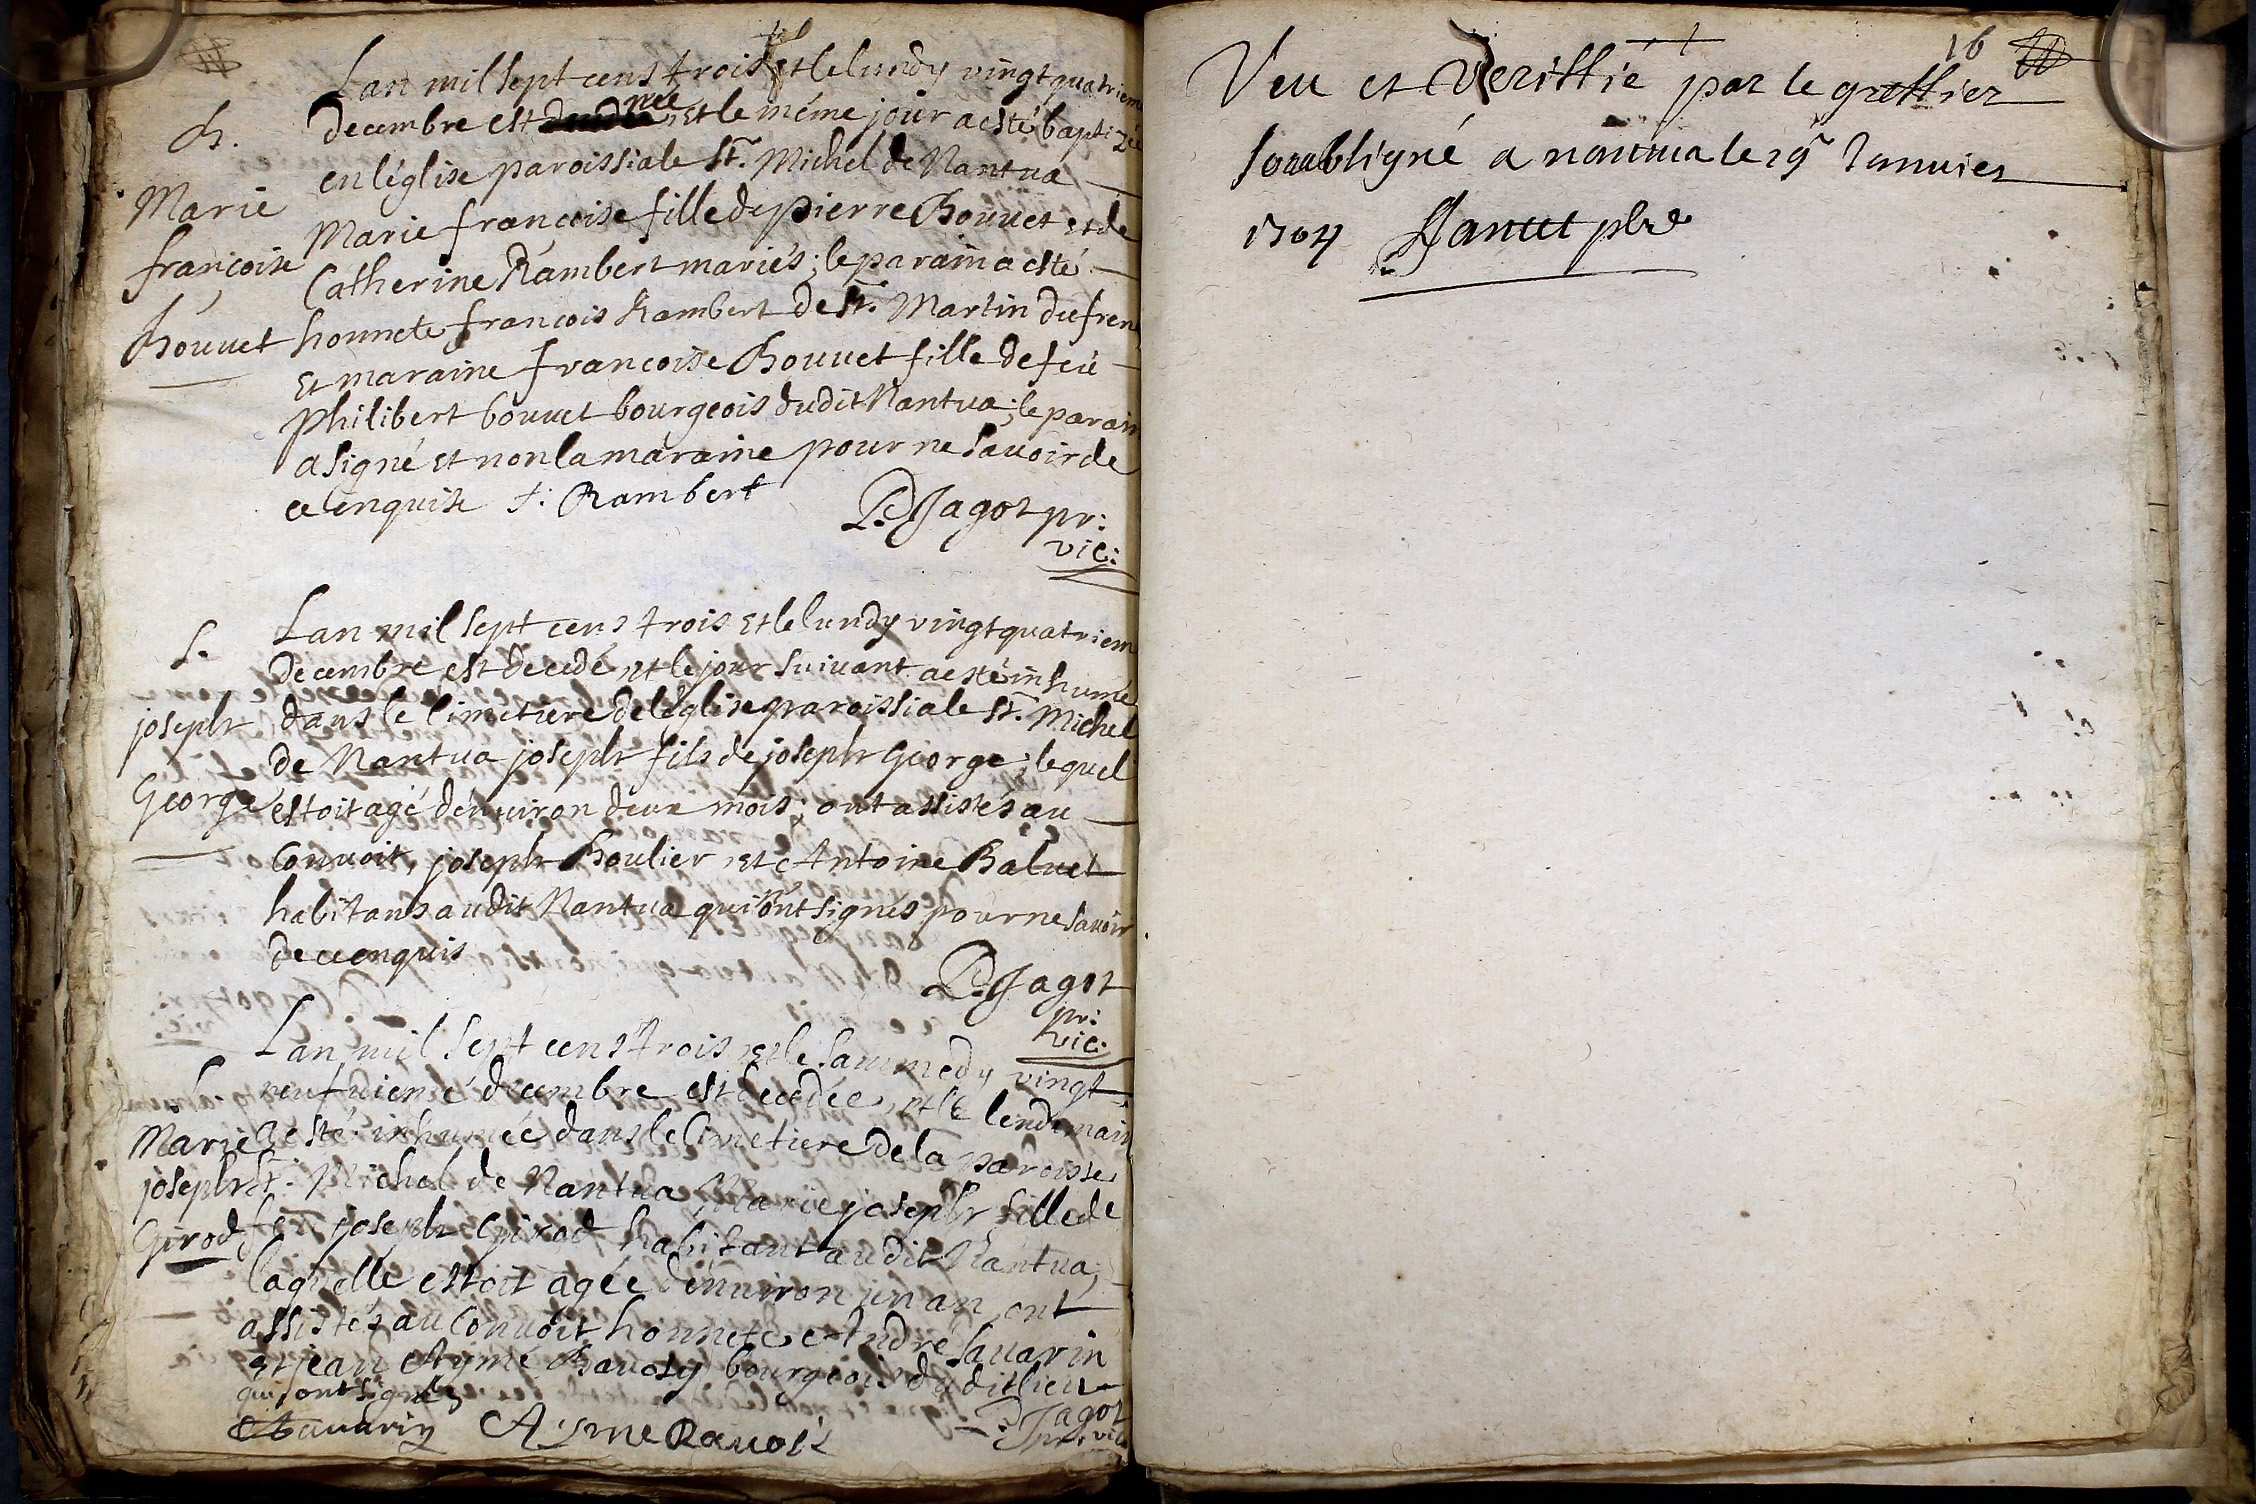 Lan mil sept cens trois et le lundy vingt quatriem
decembre est née, et le méme jour a esté baptizée
en léglise paroissiale St. Michel de Nantua
Marie françoise fille de pierre Bouuet et de
Catherine Rambert mariés; le parain a esté
honnete françois Rambert de St. Martin du fren
et maraine francoise Bouuet fille de feu
philibert bouuet bourgeois dudit Nantua; le parain
a signé et non la maraine pour ne sauoir de
ce enquise f: Rambert
P. Jagot pr:
vic:
B.
Marie
françoise
Bouuet
Lan mil sept cens trois et le lundy vingt quatriem
decembre est decedé, et le jour suiuant a esté inhumé
dans le Cimetiere de léglise paroissiale St. Michel
de Nantua joseph fils de joseph George; lequel
estoit agé dénuiron deux mois; ont assistés au
Conuoit, joseph Boulier, et Antoine Baluet
habitans audit Nantua qui n'ont signés pour ne sauoir
de ce enquis
P. Jagot
pr:
vic:
S.
joseph
George
Lan mil sept cens trois, et le sammedy vingt
neufuieme decembre est decedée, et le lendemain
a esté inhumée dans le Cimetiere de la paroisse
St. Michel de Nantua, Marie joseph fille de
feu joseph Girod habitant audit Nantua;
laquelle estoit agée dénuiron un an, ont
assistés au Conuoit honnete André Sauarin
et jean Aymé Rauosy bourgeois dudit lieu
qui ont signés
ASauarin Aymé Rauosé
P. Jagot
pr. vic.
S.
Marie
joseph
Girod
16
Veu et Veriffié par le greffier
soubsigné a nantua le 19e Januier
1704